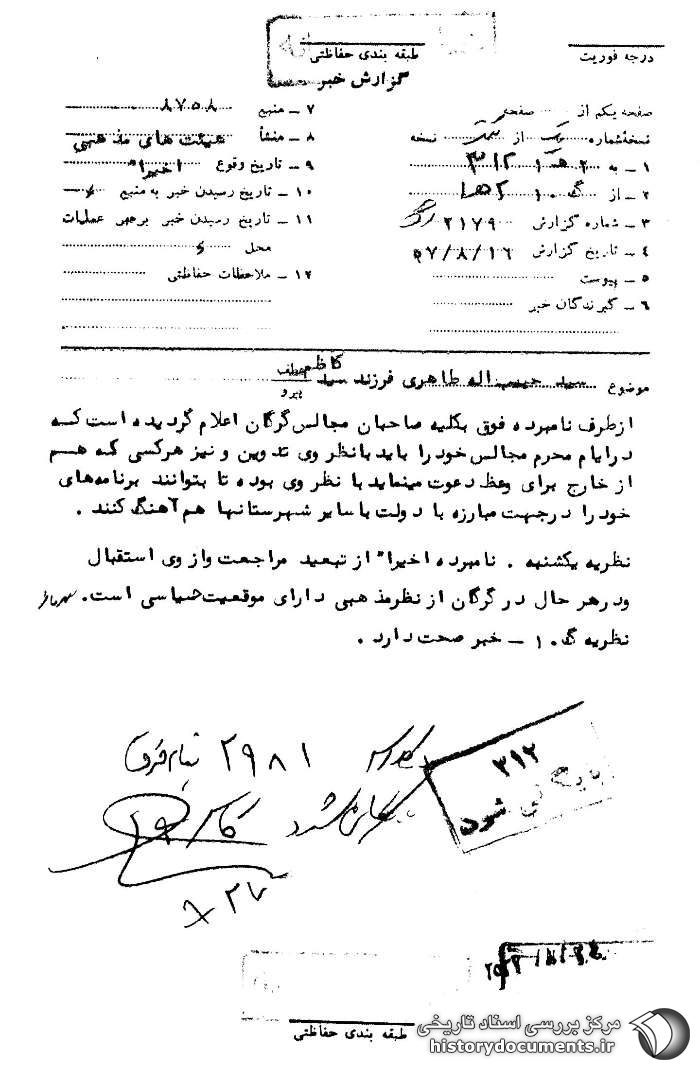 درجه فوریت
طبقه بندی حفاظتی
گزارش خبر
صفحه یکم از صفحه
نسخهٔ شماره یک از نسخه
۱ ـ به ۲ هـ ۱ ۳۱۲
۲ ـ از گ ۱۰ ۲ ها
۳ ـ شماره گزارش ۲۱۷۹
۴ ـ تاریخ گزارش ۵۷/۸/۱۶
۵ ـ پیوست
۶ ـ گیرندگان خبر
۷ ـ منبع ۸۷۵۸
۸ ـ منشأ هیئت های مذهبی
۹ ـ تاریخ وقوع اخیراً
۱۰ ـ تاریخ رسیدن خبر به منبع
۱۱ ـ تاریخ رسیدن خبر برهبر عملیات
محل
۱۲ ـ ملاحظات حفاظتی
موضوع سید حبیب اله طاهری فرزند سید کاظم
عطف
پیرو
ازطرف نامبرده فوق بکلیه صاحبان مجالس گرگان اعلام گردیده است که
درایام محرم مجالس خود را باید بانظر وی تدوین و نیز هرکسی که هم
از خارج برای وعظ دعوت مینماید با نظر وی بوده تا بتوانند برنامه‌های
خود را درجهت مبارزه با دولت با سایر شهرستانها هم آهنگ کنند .
نظریه یکشنبه . نامبرده اخیراً از تبعید مراجعت واز وی استقبال
ودر هر حال در گرگان از نظر مذهبی دارای موقعیت حساسی است.
نظریه گ ۱۰ ـ خبر صحت دارد .
۲۹۸۱
۳۱۲
بایگانی شود
۲۷
طبقه بندی حفاظتی
مرکز بررسی اسناد تاریخی
historydocuments.ir